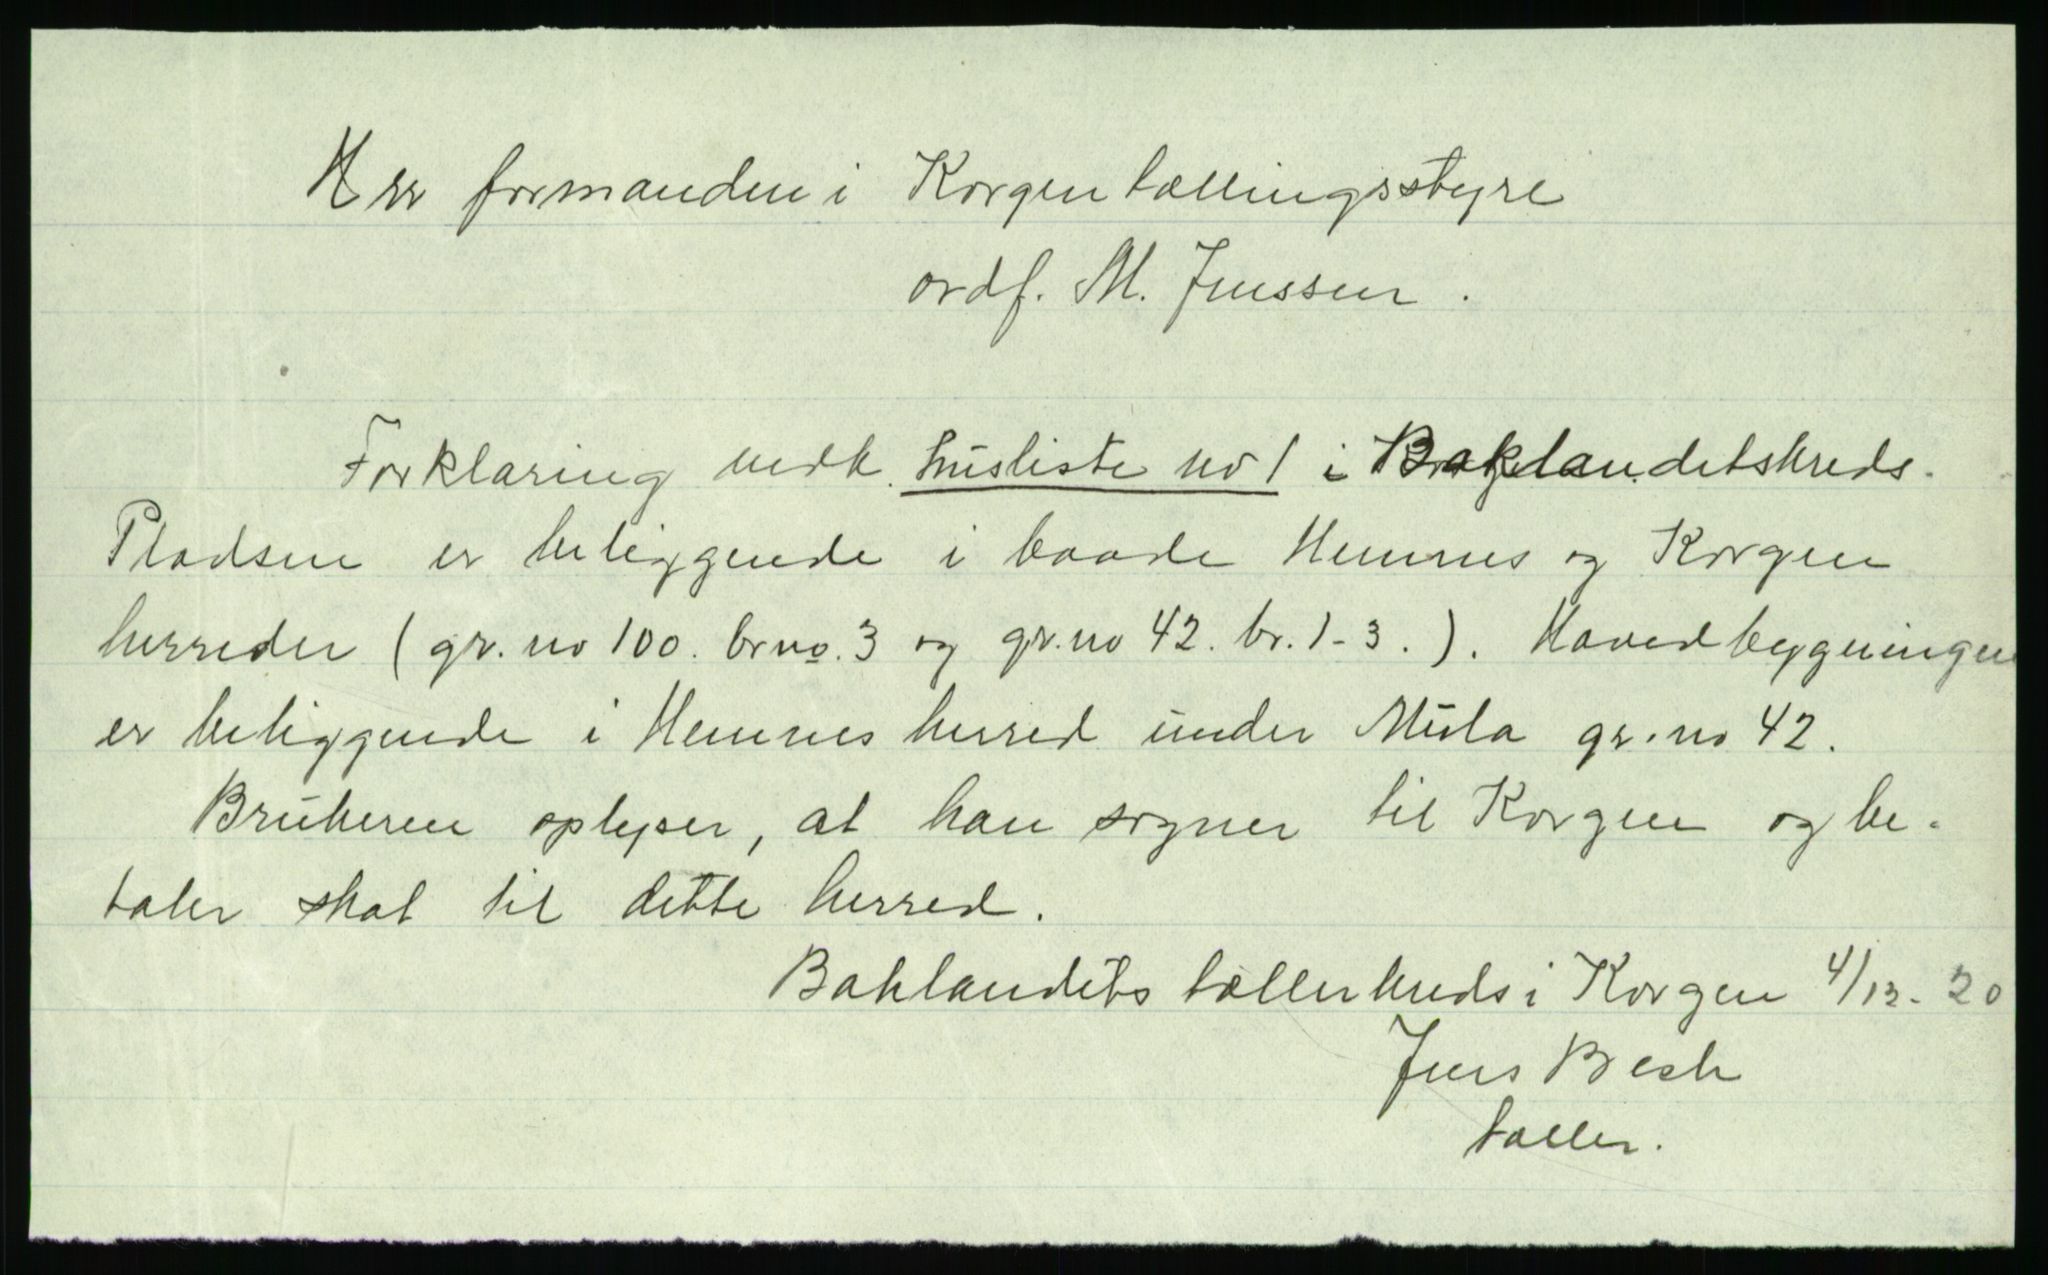 Herr formanden i Korgen tællingsstyre
ordf. M. Jenssen.
Forklaring vedk. husliste no 1 i Baklandetskreds.
Pladsen er beliggende i baade Hemnes og Korgen
herreder (gr. no 100. br no. 3 og gr. no 42. br. 1-3.). Hovedbygningen
er beliggende i Hemnes herred under Mula gr. no 42.
Brukeren oplyser, at han sogner til Korgen og be-
taler skat til dette herred.
Baklandets tællerkreds i Korgen 4/12-20
Jens Bech
tæller.